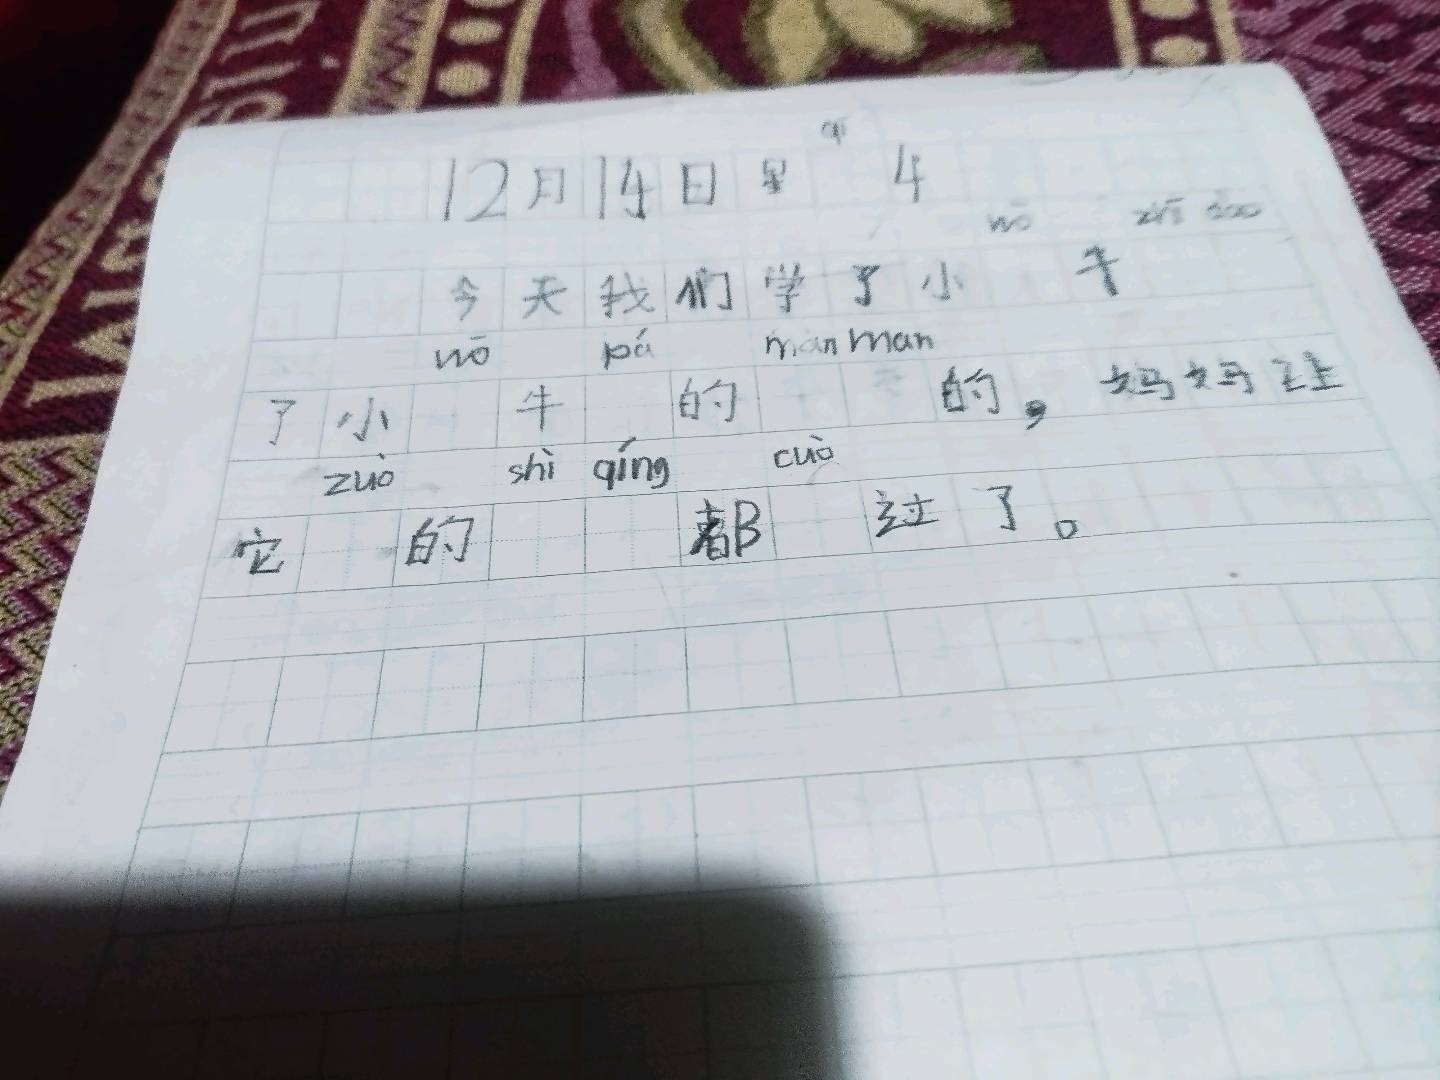 qī
12月14日星 4
wō zhī dao
今天我们学了小 牛
wō pá man man
了小 牛 的 的，妈妈让
zuò shì qíng cuò
它 的 都 过了。